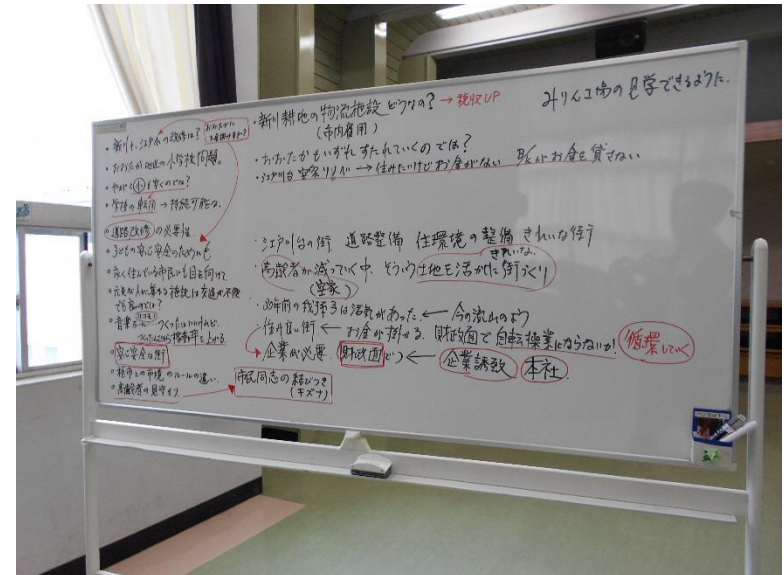 ・新川と、江戸川の改修は?
・おおたか地区の小学校問題。
・やがて小も 
・学校の転用→持続可能な、
・道路改修の必要性
・子どもの安心安全のためにも
・永く住んでいる市民にも目を向けて
・元気な人が集める施設は交通が不便
でも良いのでは?
・音楽ホール つくったはいいけれど、
つくったんなら稼働率を上げる
・安心安全な街
・柏市との市境のルールの違い、
・高齢者の見守り
・新川耕地の物流施設どうなの?→税収UP
(市内雇用)
みりん工場の見学できるように、
・おおたかもいずれすたれていくのでは?
・江戸川台 空家リノベ→住みたいけどお金がない お金を貸さない
・江戸川台の街 道路整備 住環境の整備 きれいな街
きれいな
・高齢者が減っていく中、そういう土地を活かした街づくり
(空家)
・30年前の我孫子は活気があった←今の流山のよう
・住み良い街←お金が掛かる、財政面で自転操業にならないか!
循環していく
・企業が必要 財政面で ←企業誘致 本社
市民同志の結びつき
(キズナ)